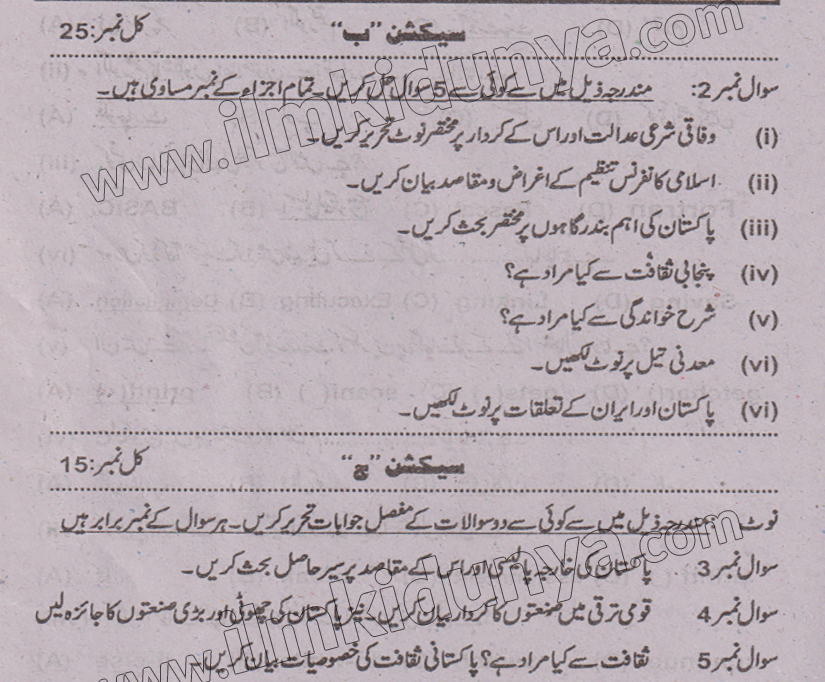 سیکشن "ب" کل نمبر: 25
سوال نمبر 2: مندرجہ ذیل میں سے کوئی سے 5 سوال حل کریں۔ تمام اجزاء کے نمبر مساوی ہیں۔
(i) وفاقی شرعی عدالت اور اس کے کردار پر مختصر نوٹ تحریر کریں۔
(ii) اسلامی کانفرنس تنظیم کے اغراض و مقاصد بیان کریں۔
(iii) پاکستان کی اہم بندرگاہوں پر مختصر بحث کریں۔
(iv) پنجابی ثقافت سے کیا مراد ہے؟
(v) شرح خواندگی سے کیا مراد ہے؟
(vi) معدنی تیل پر نوٹ لکھیں۔
(vi) پاکستان اور ایران کے تعلقات پر نوٹ لکھیں۔
سیکشن "ج" کل نمبر: 15
نوٹ: مندرجہ ذیل میں سے کوئی سے دو سوالات کے مفصل جوابات تحریر کریں۔ ہر سوال کے نمبر برابر ہیں
سوال نمبر 3 پاکستان کی خارجہ پالیسی اور اس کے مقاصد پر سیر حاصل بحث کریں۔
سوال نمبر 4 قومی ترقی میں صنعتوں کا کردار بیان کریں۔ نیز پاکستان کی چھوٹی اور بڑی صنعتوں کا جائزہ لیں
سوال نمبر 5 ثقافت سے کیا مراد ہے؟ پاکستانی ثقافت کی خصوصیات بیان کریں۔
www.ilmkidunya.com
www.ilmkidunya.com